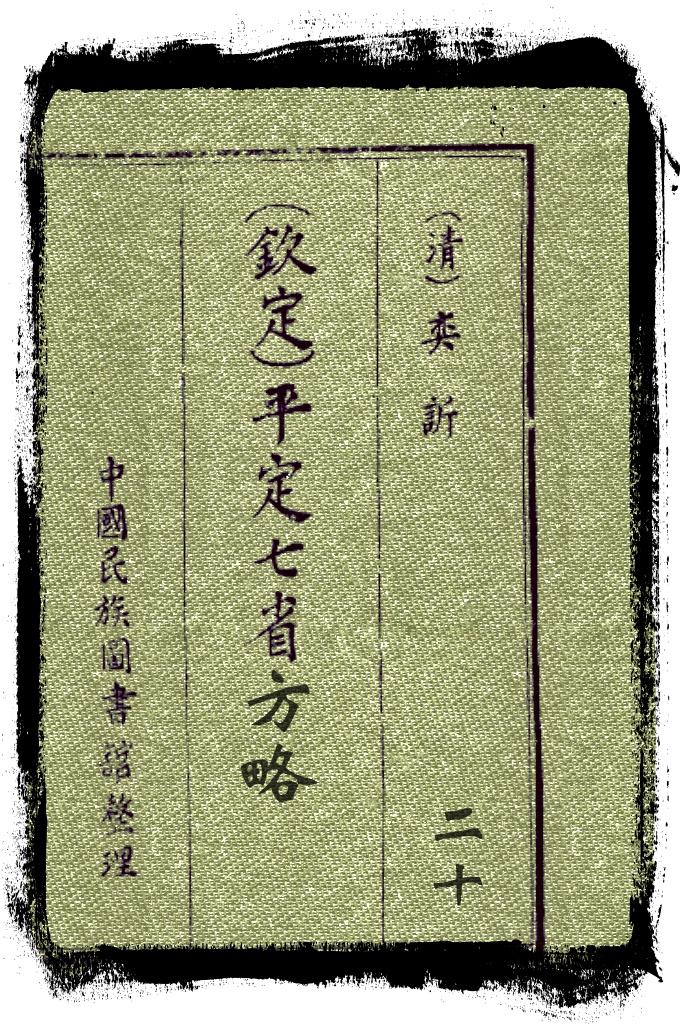 （清）奕訢
二十
（欽定）平定七省方略
中國民族圖書館整理